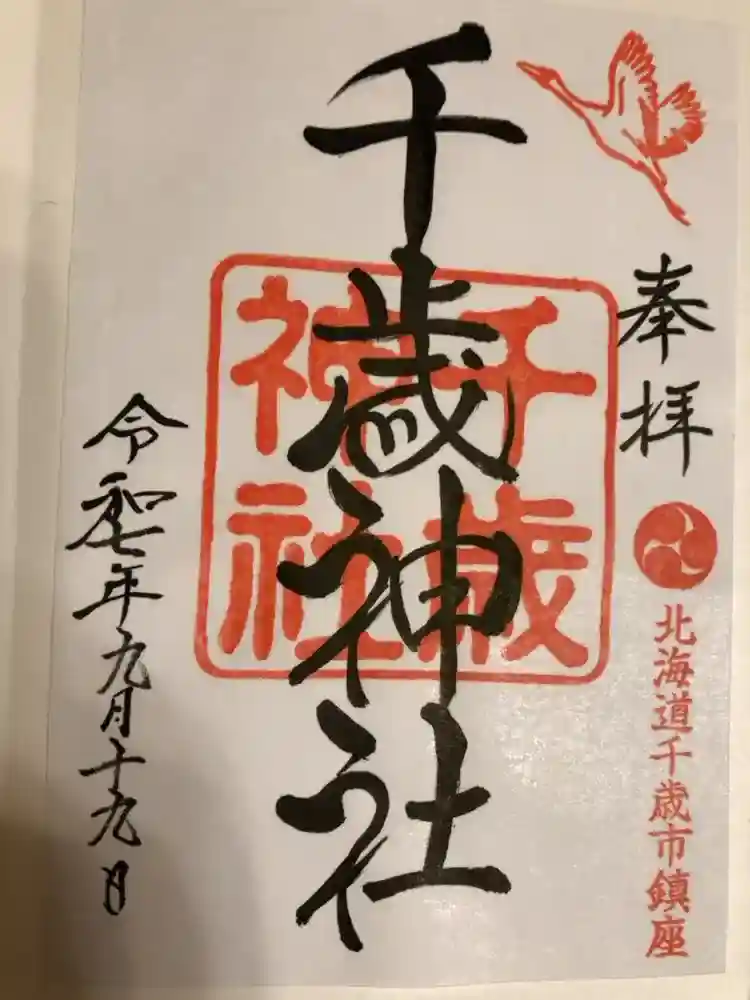 奉拝
北海道千歳市鎮座
千歳神社
千歳
神社
令和七年九月十九日